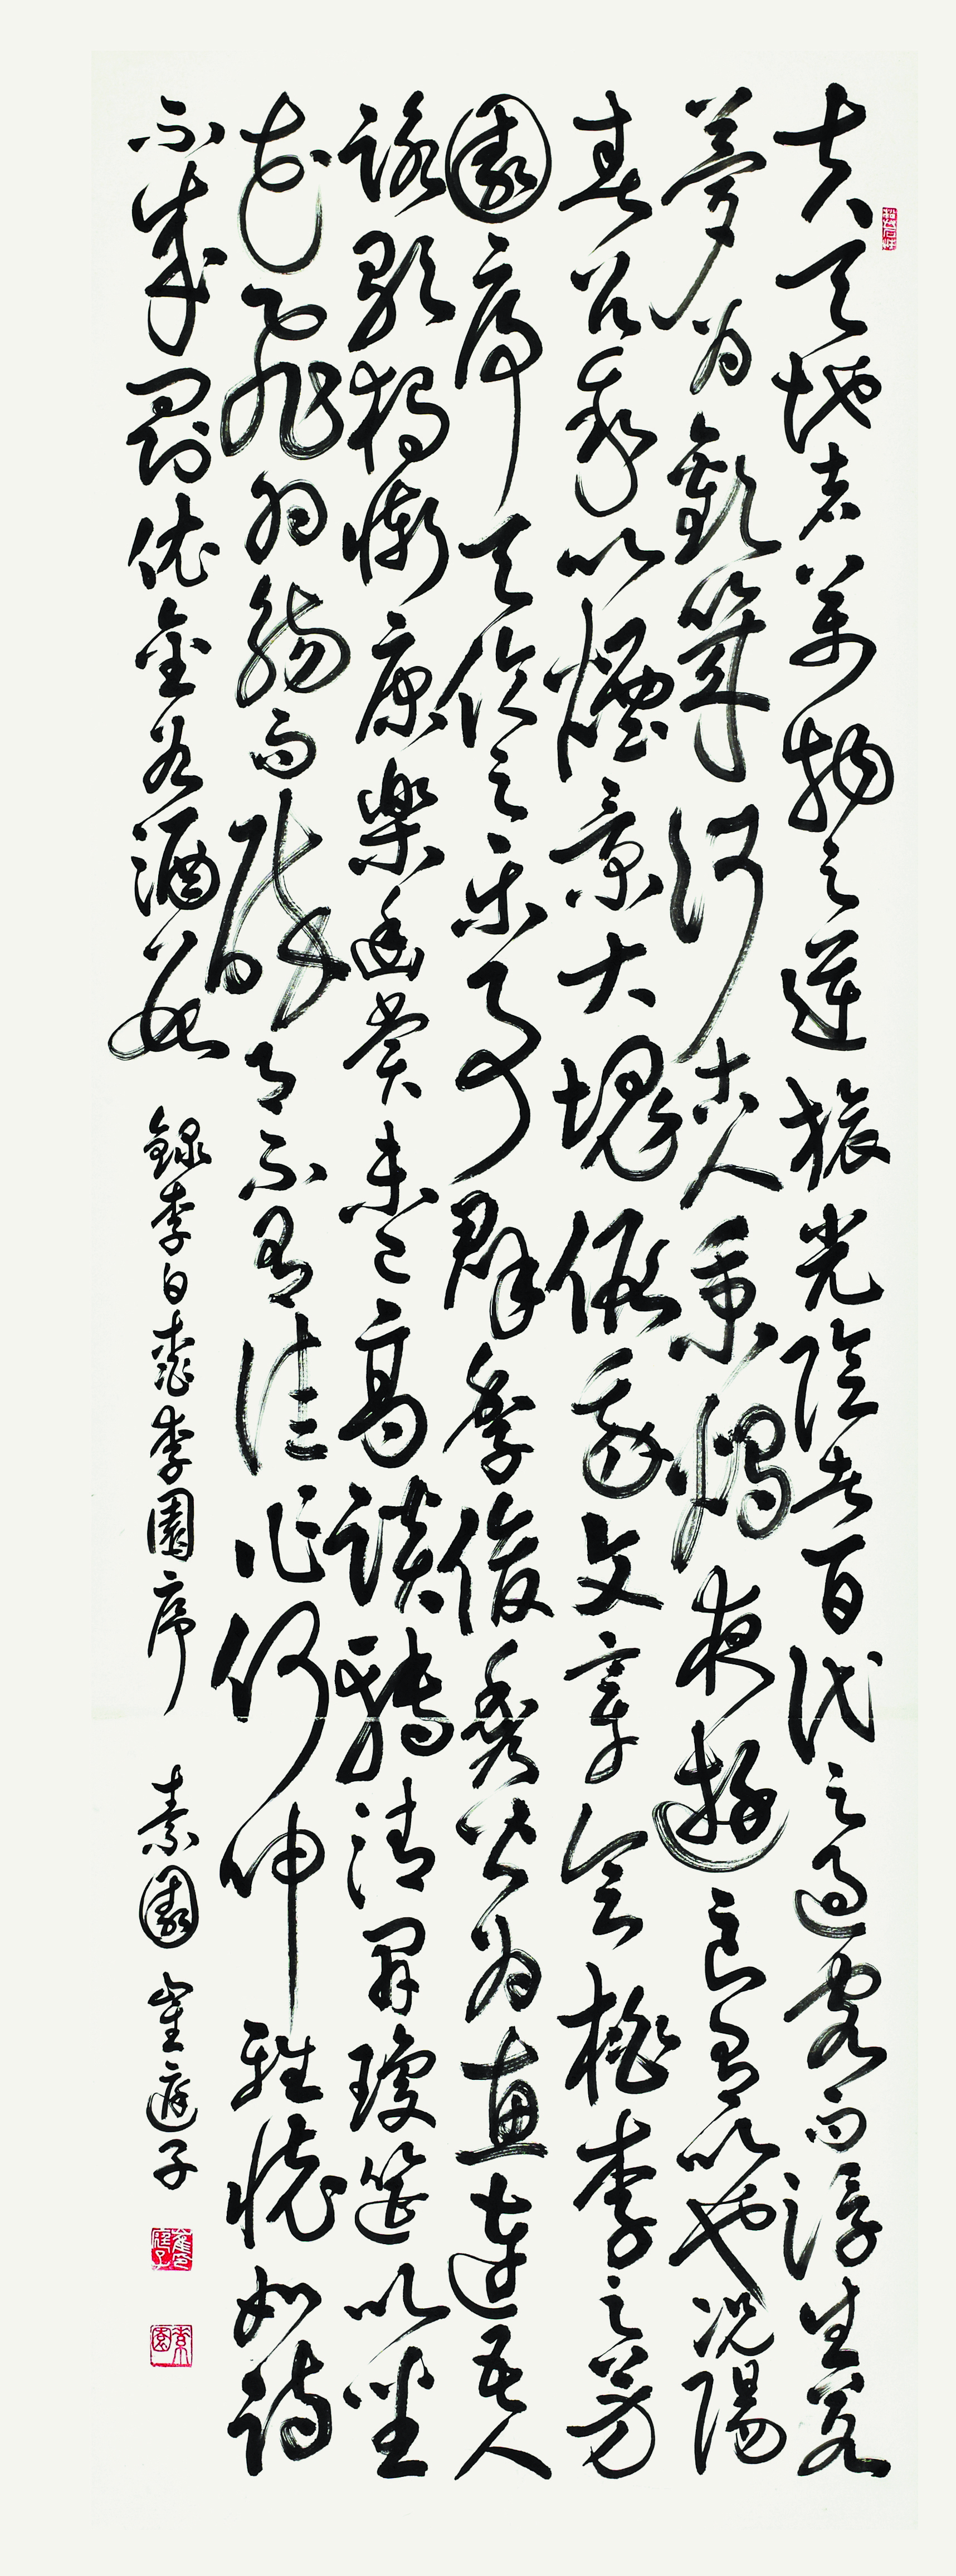 夫天地者萬物之逆旅光陰者百代之過客而浮生若
夢為歡幾何古人秉燭夜遊良有以也況陽
春召我以煙景大塊假我文章會桃李之芳
園序天倫之樂事群季俊秀皆為惠連吾人
詠歌獨慚康樂幽賞未已高談轉清開瓊筵以坐
花飛羽觴而醉月不有佳作何伸雅懷如詩
不成罰依金谷酒數 錄李白桃李園序 素園 崔庭子
素園